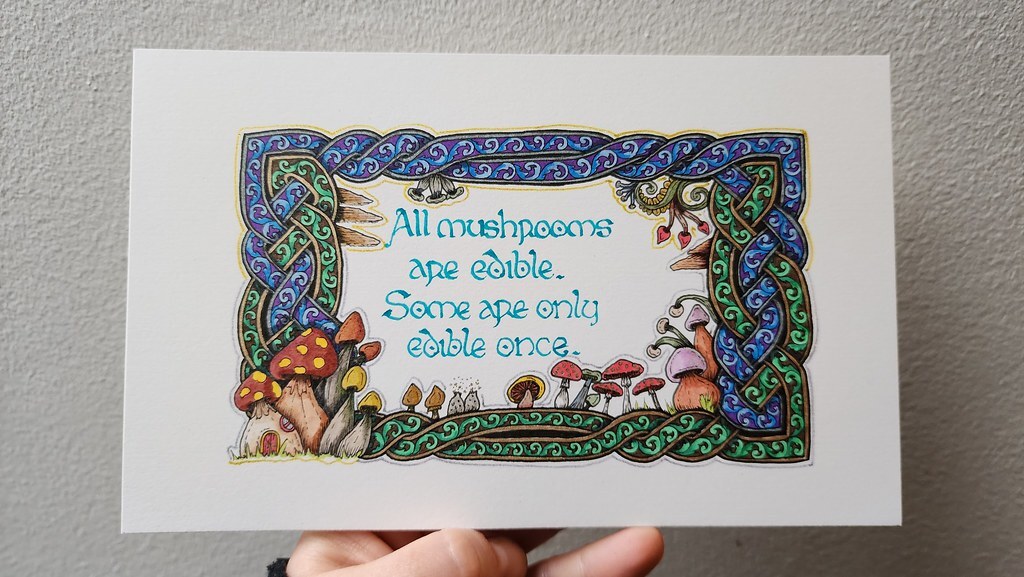 All mushrooms
are edible.
Some are only
edible once.